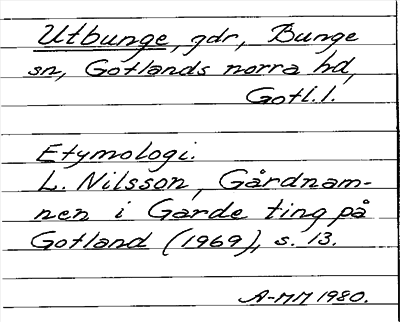 Utbunge, gdr, Bunge
sn, Gotlands norra hd,
Gotl. l.
Etymologi.
L. Nilsson, Gårdnam-
nen i Garde ting på
Gotland (1969), s. 13.
A-MM 1980.